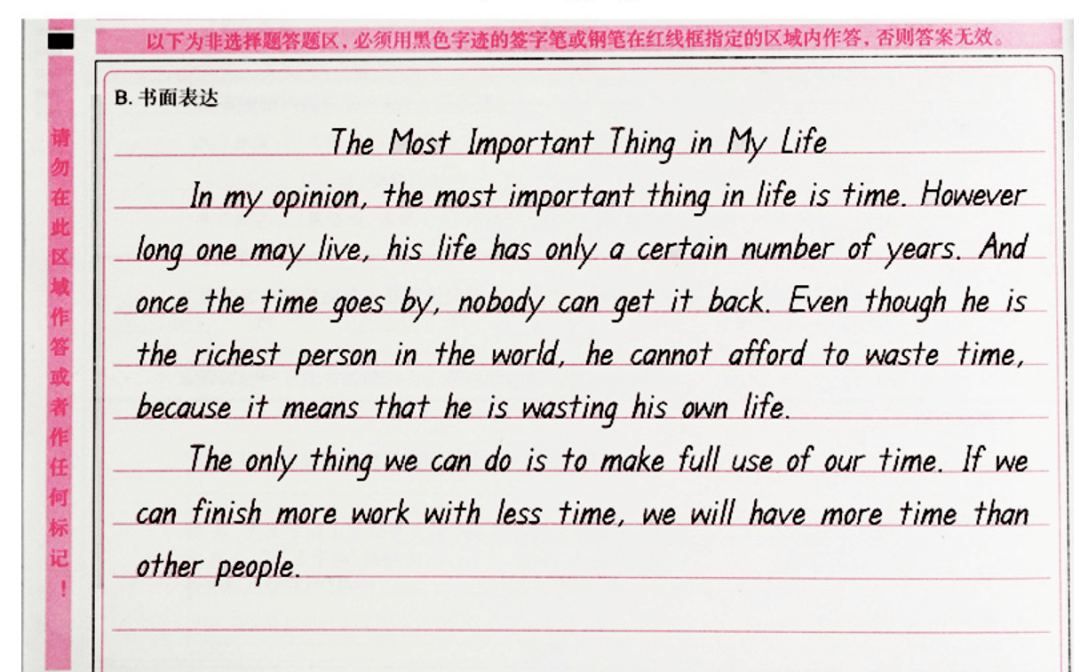 以下为非选择题答题区,必须用黑色字迹的签字笔或钢笔在红线框指定的区域内作答,否则答案无效。
请勿在此区域作答或者作任何标记!
B. 书面表达
The Most Important Thing in My Life
In my opinion, the most important thing in life is time. However
long one may live, his life has only a certain number of years. And
once the time goes by, nobody can get it back. Even though he is
the richest person in the world, he cannot afford to waste time,
because it means that he is wasting his own life.
The only thing we can do is to make full use of our time. If we
can finish more work with less time, we will have more time than
other people.